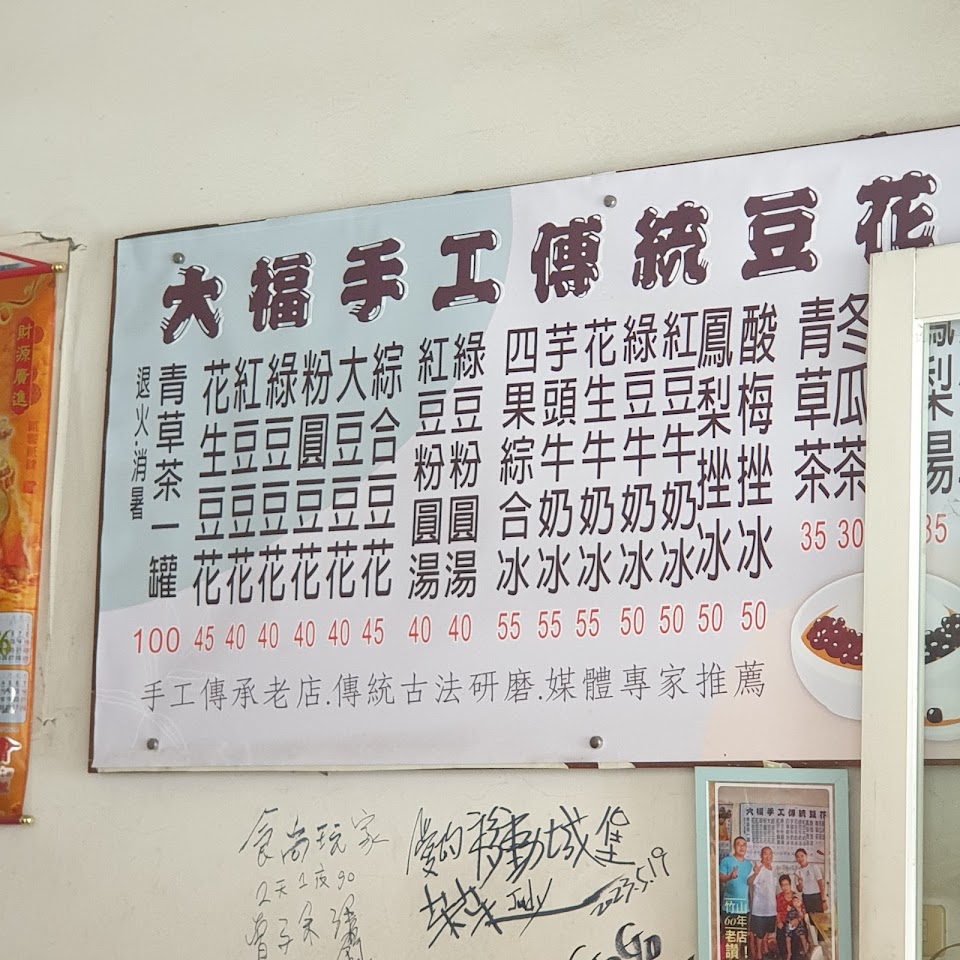 大福手工傳統豆花
退火消暑
青草茶一罐 100
花生豆花 45
紅豆豆花 40
綠豆豆花 40
粉圓豆花 40
大豆豆花 40
綜合豆花 45
紅豆粉圓湯 40
綠豆粉圓湯 40
四果綜合冰 55
芋頭牛奶冰 55
花生牛奶冰 55
綠豆牛奶冰 50
紅豆牛奶冰 50
鳳梨挫冰 50
酸梅挫冰 50
青草茶 35
冬瓜茶 30
梨湯 35
手工傳承老店.傳統古法研磨.媒體專家推薦
財源廣進
食尚玩家
2天1夜go
愛的移動城堡
July 2023.5.19
大福手工傳統豆花
竹山
60年
老店
讚！